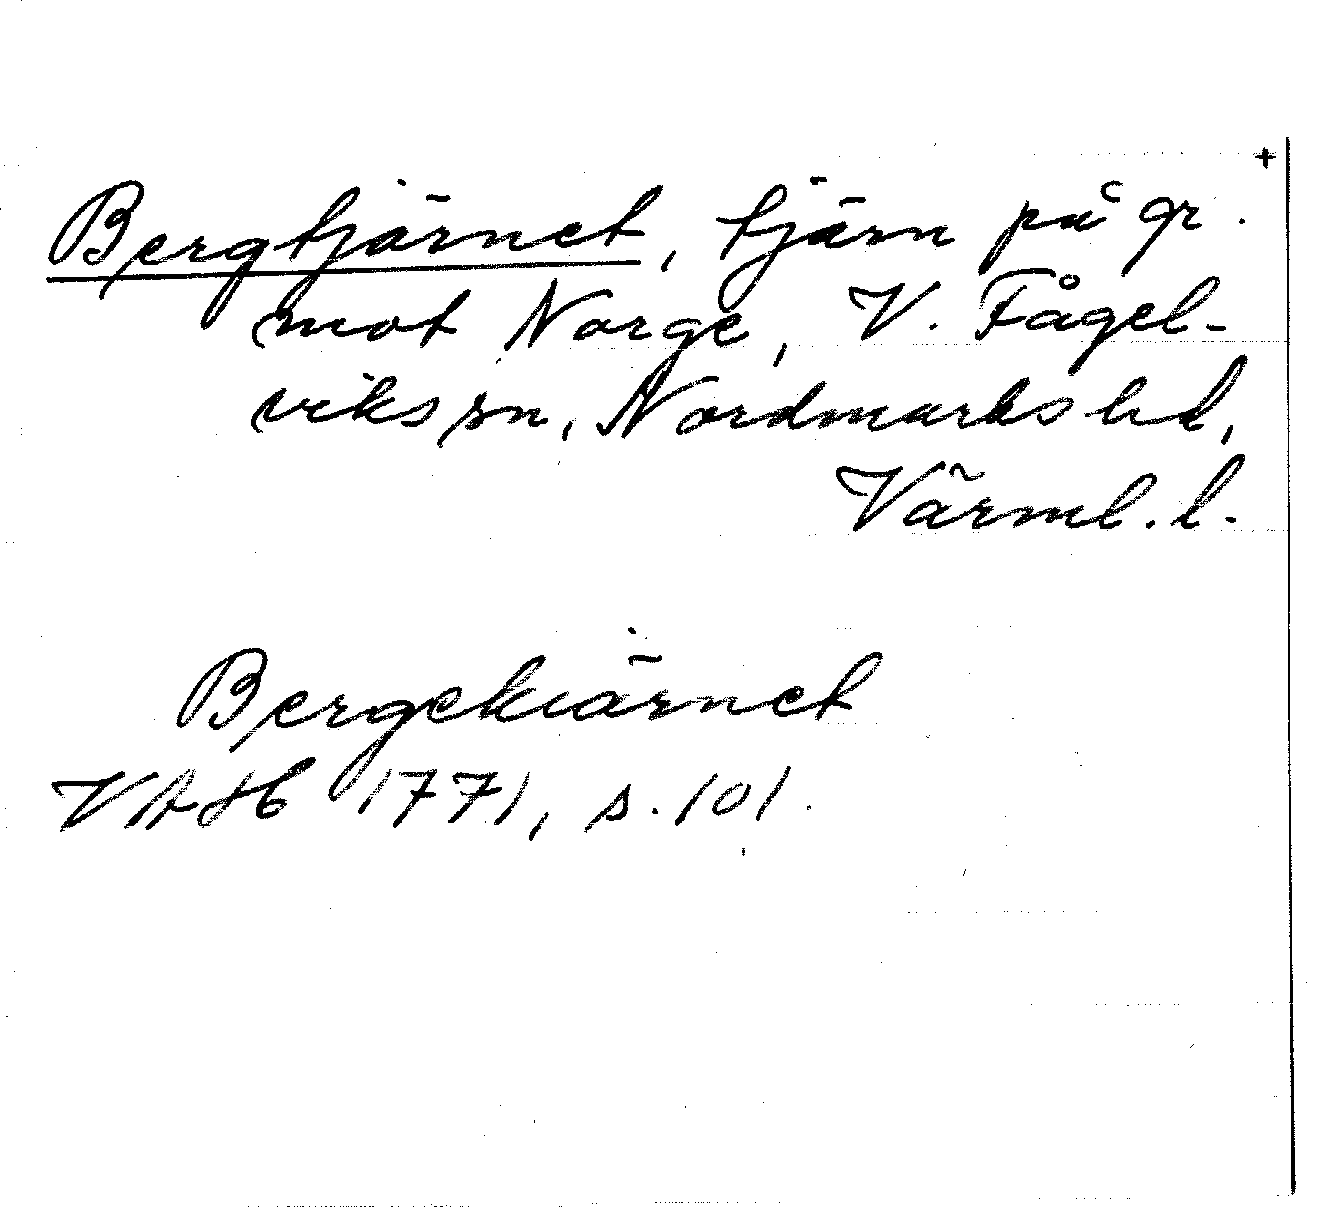 +
Bergtjärnet, tjärn på gr.
mot Norge, V. Fågel-
viks sn, Nordmarks hd,
Värml. l.
Bergekiärnet
VAHb 1771, s. 101.